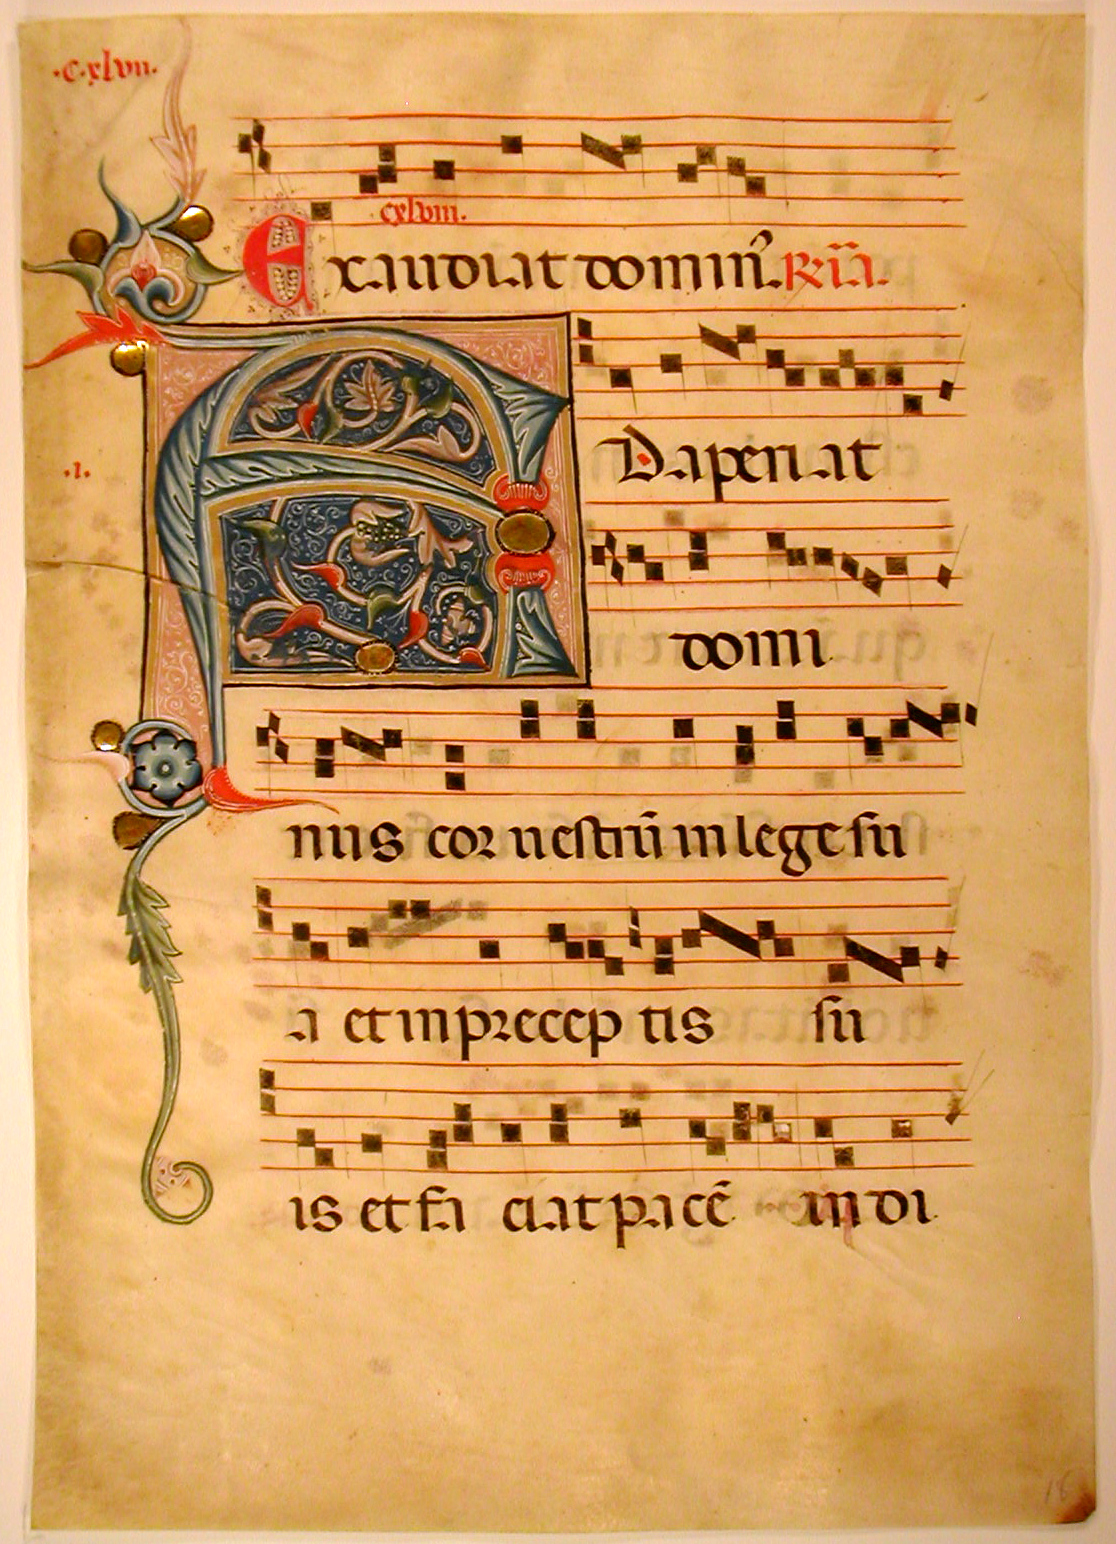 .C.xlvii.
cxlviii.
Exaudiat domin᷒. R͂ia.
.i.
A Daperiat
domi
nus cor uestrū in lege su
a et in precep tis su
is et fa ciat pacē in di
18